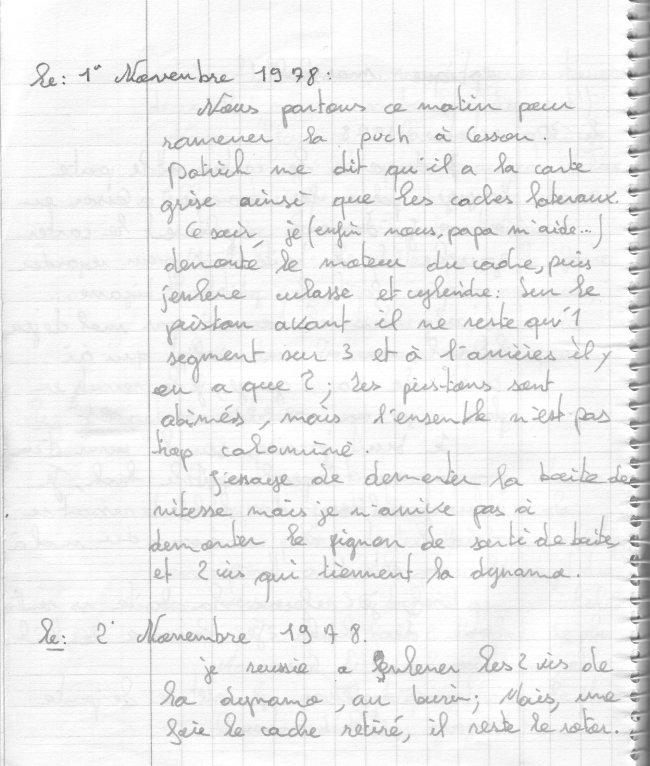 Le: 1° Novembre 1978:
Nous partons ce matin pour
ramener la puch à Cesson.
Patrich me dit qu'il a la carte
grise ainsi que les caches lateraux.
Ce soir, je (enfin nous, papa m'aide...)
demonte le moteur du cadre, puis
j'enleve culasse et cylindre: Sur le
piston avant il ne reste qu'1
segment sur 3 et à l'arrières il y
en a que 2; les pis-tons sont
abimés, mais l'ensemble n'est pas
trop calominé.
J'essaye de demonter la boite de
vitesse mais je n'arrive pas à
demonter le pignon de sorti de boite,
et 2 vis qui tiennent la dynamo.
Le: 2° Novembre 1978.
je reussie a enlener les 2 vis de
la dynamo, au burin; Mais, une
foie le cache retiré, il reste le rotor.